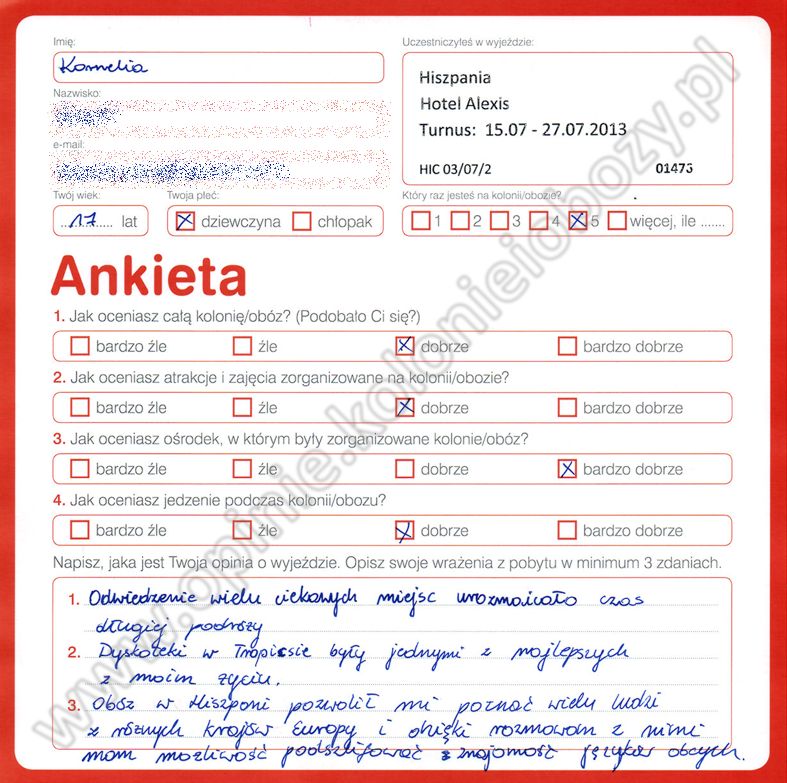 Imię:
Kornelia
Uczestniczyłeś w wyjeździe:
Hiszpania
Hotel Alexis
Turnus: 15.07 - 27.07.2013
HIC 03/07/2 01473
Nazwisko:
e-mail:
Twój wiek:
17 lat
Twoja płeć:
dziewczyna chłopak
Który raz jesteś na kolonii/obozie?
1 2 3 4 5 więcej, ile .......
Ankieta
1. Jak oceniasz całą kolonię/obóz? (Podobało Ci się?)
bardzo źle źle dobrze bardzo dobrze
2. Jak oceniasz atrakcje i zajęcia zorganizowane na kolonii/obozie?
bardzo źle źle dobrze bardzo dobrze
3. Jak oceniasz ośrodek, w którym były zorganizowane kolonie/obóz?
bardzo źle źle dobrze bardzo dobrze
4. Jak oceniasz jedzenie podczas kolonii/obozu?
bardzo źle źle dobrze bardzo dobrze
Napisz, jaka jest Twoja opinia o wyjeździe. Opisz swoje wrażenia z pobytu w minimum 3 zdaniach.
1. Odwiedzenie wielu ciekawych miejsc urozmaicało czas
długiej podróży
2. Dyskoteki w Tropicsie były jednymi z najlepszych
z moim życiu.
3. Obóz w Hiszponi pozwolił mi poznać wielu ludzi
z różnych krajów Europy i dzięki rozmowom z nimi
mam możliwość podszlifować znajomość języków obcych.
www.opinie.kolonieiobozy.pl